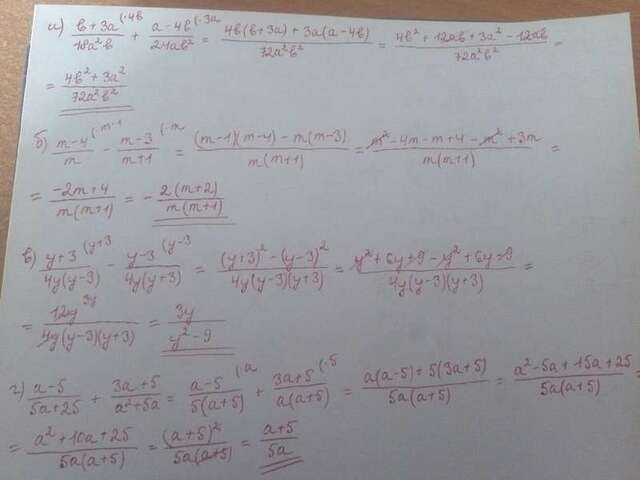 а) (b+3a)/(18a²b) (·4b + (a-4b)/(24ab²) (·3a = (4b(b+3a)+3a(a-4b))/(72a²b²) = (4b²+12ab+3a²-12ab)/(72a²b²) =
= (4b²+3a²)/(72a²b²)
б) (m-4)/m (·m-1 - (m-3)/(m+1) (·m = ((m-1)(m-4)-m(m-3))/(m(m+1)) = (m²-4m-m+4-m²+3m)/(m(m+1)) =
= (-2m+4)/(m(m+1)) = -(2(m+2))/(m(m+1))
в) (y+3)/(4y(y-3)) (y+3 - (y-3)/(4y(y+3)) (y-3 = ((y+3)²-(y-3)²)/(4y(y-3)(y+3)) = (y²+6y+9-y²+6y-9)/(4y(y-3)(y+3)) =
= (12y)/(4y(y-3)(y+3)) 3y = (3y)/(y²-9)
г) (a-5)/(5a+25) + (3a+5)/(a²+5a) = (a-5)/(5(a+5)) (·a + (3a+5)/(a(a+5)) (·5 = (a(a-5)+5(3a+5))/(5a(a+5)) = (a²-5a+15a+25)/(5a(a+5)) =
= (a²+10a+25)/(5a(a+5)) = (a+5)²/(5a(a+5)) = (a+5)/(5a)